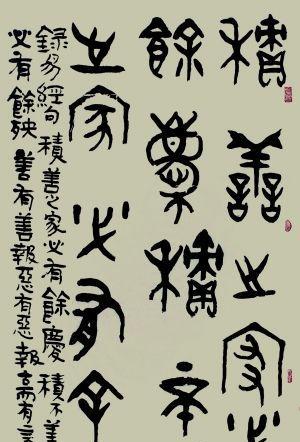 積善之家必
餘慶積不
之家必有余
錄易經句 積善之家必有餘慶 積不善
必有餘殃 善有善報惡有惡報